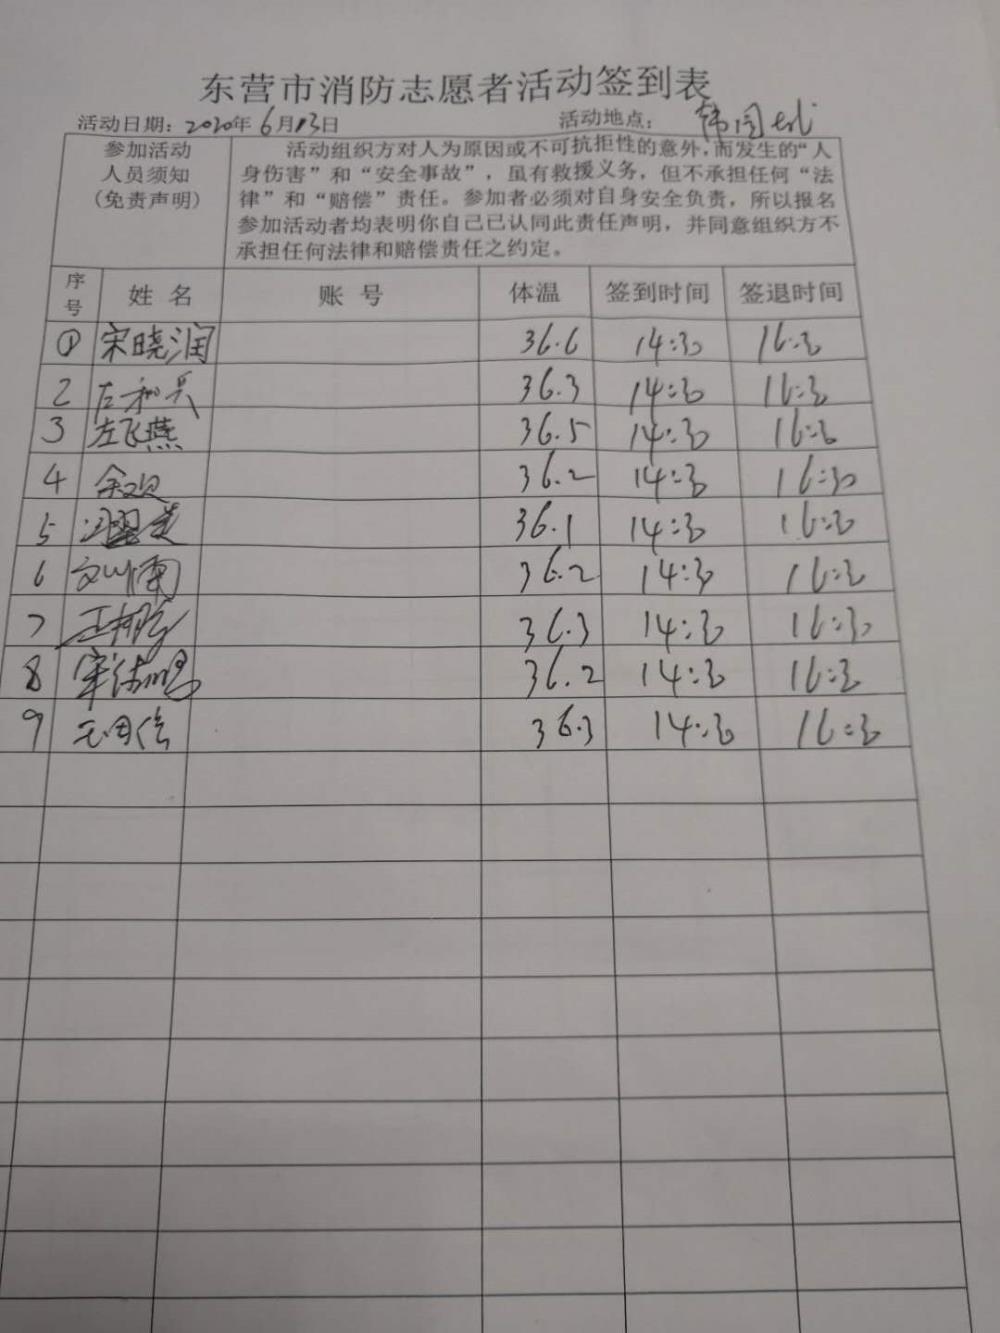 东营市消防志愿者活动签到表
活动日期：2020年6月13日 活动地点：韩园
参加活动人员须知（免责声明）
活动组织方对人为原因或不可抗拒性的意外，而发生的“人
身伤害”和“安全事故”，虽有救援义务，但不承担任何“法
律”和“赔偿”责任。参加者必须对自身安全负责，所以报名
参加活动者均表明你自己已认同此责任声明，并同意组织方不
承担任何法律和赔偿责任之约定。
序号 姓名 账号 体温 签到时间 签退时间
① 宋晓润 36.6 14:30 16:30
2 左和兵 36.3 14:30 16:30
3 左飞燕 36.5 14:30 16:30
4 余欢 36.2 14:30 16:30
5 36.1 14:30 16:30
6 36.2 14:30 16:30
7 36.3 14:30 16:30
8 36.2 14:30 16:30
9 36.3 14:30 16:30